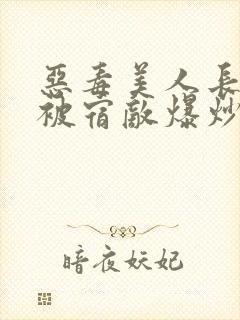 惡毒美人長
被宿敵爆炒
暗夜妖妃